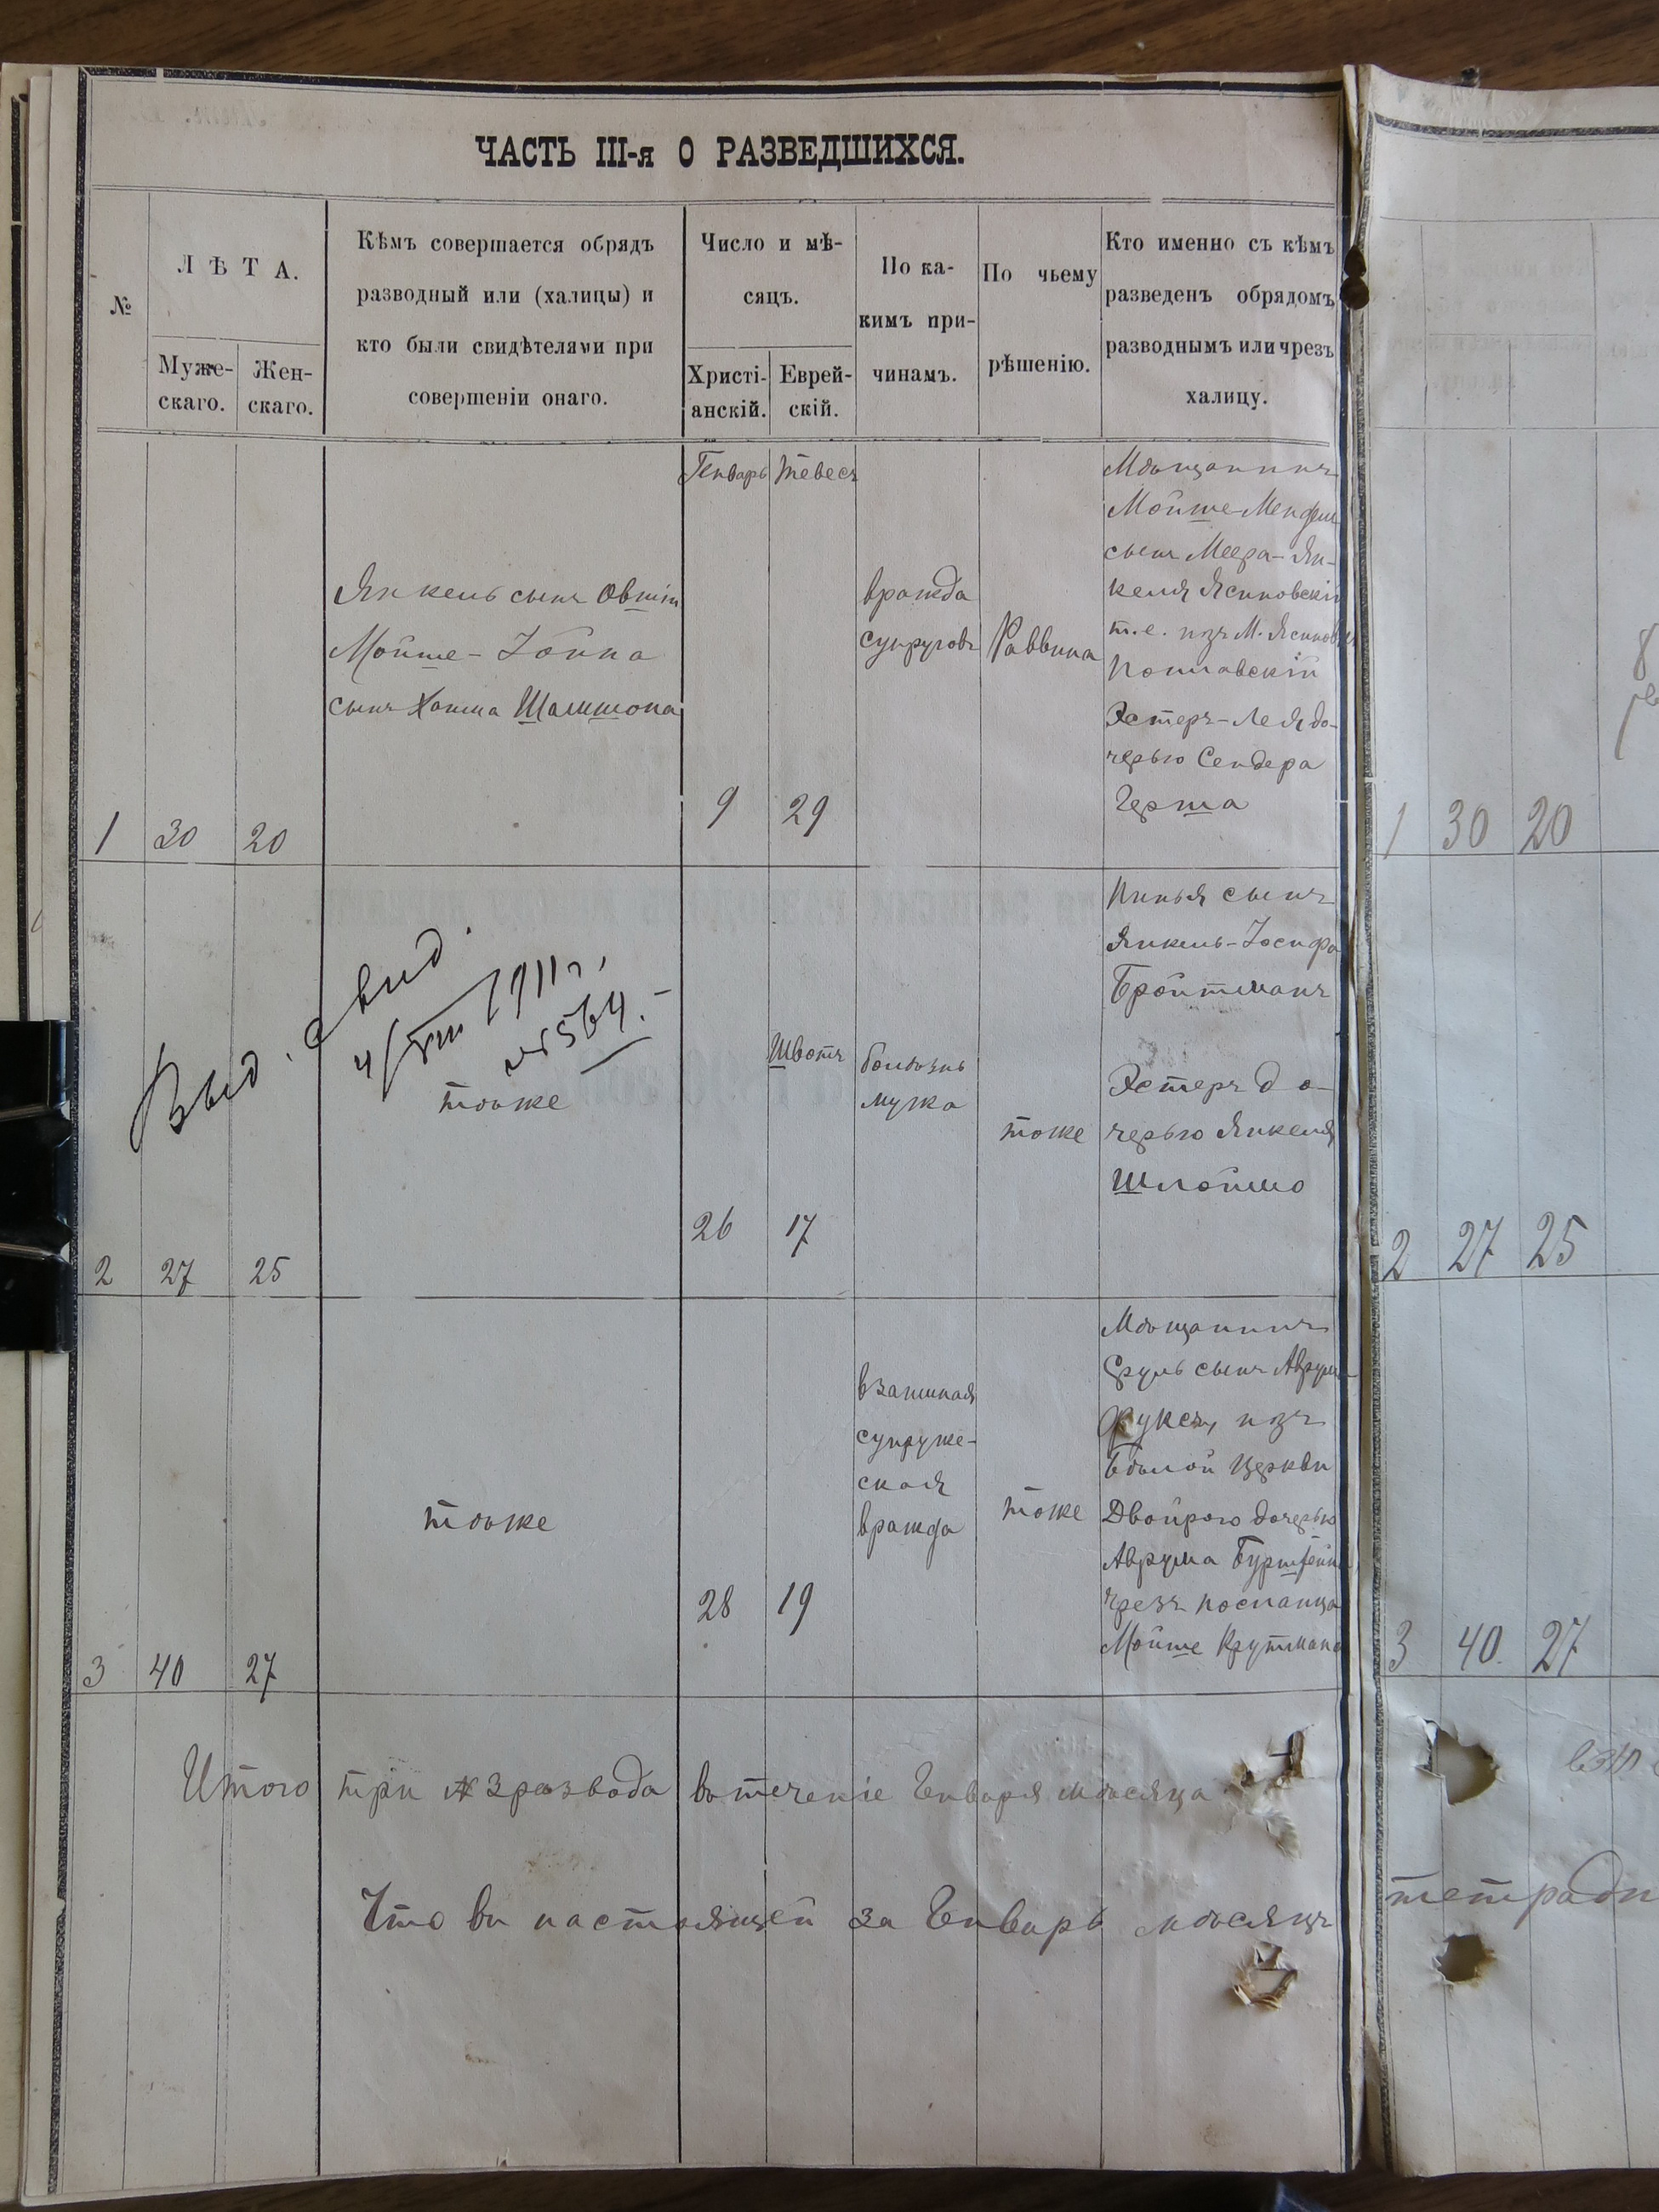 ЧАСТЬ III-я О РАЗВЕДШИХСЯ.
№
ЛѢТА.
Муже-
скаго.
Жен-
скаго.
Кѣмъ совершается обрядъ
разводный или (халицы) и
кто были свидѣтелями при
совершеніи онаго.
Число и мѣ-
сяцъ.
Христі-
анскій.
Еврей-
скій.
По ка-
кимъ при-
чинамъ.
По чьему
рѣшенію.
Кто именно съ кѣмъ
разведенъ обрядомъ
разводнымъ или чрезъ
халицу.
1
30
20
Янкель сынъ
Мойше-Іойна
сынъ Хаима Шамшона
Генварь
9
Тевесъ
29
вражда
супруговъ
Раввина
Мѣщанинъ
Мойше-Мендель
сынъ Меера-Ян-
келя Ясиновскій
т.е. изъ М.
Эстеръ-Лея до-
черью Сендера
Герша
1 30 20
Выд. свид.
4/VIII 1911 г.
№ 564.
2
27
25
тоже
26
Швотъ
17
болѣзнь
мужа
тоже
Пинья сынъ
Янкель-Іосифа
Бройтманъ
Эстеръ до-
черью Янкеля
Шлоймо
2 27 25
3
40
27
тоже
28
19
взаимная
супруже-
ская
вражда
тоже
Мѣщанинъ
Сруль сынъ Аврума
Фуксъ, изъ
Бѣлой Церкви
Двойрою дочерью
Аврума
чрезъ посланца
Мойше Крутмана
3 40. 27
Итого три 3 развода въ теченіе Генваря мѣсяца
Что въ настоящей за Генварь мѣсяцъ тетради